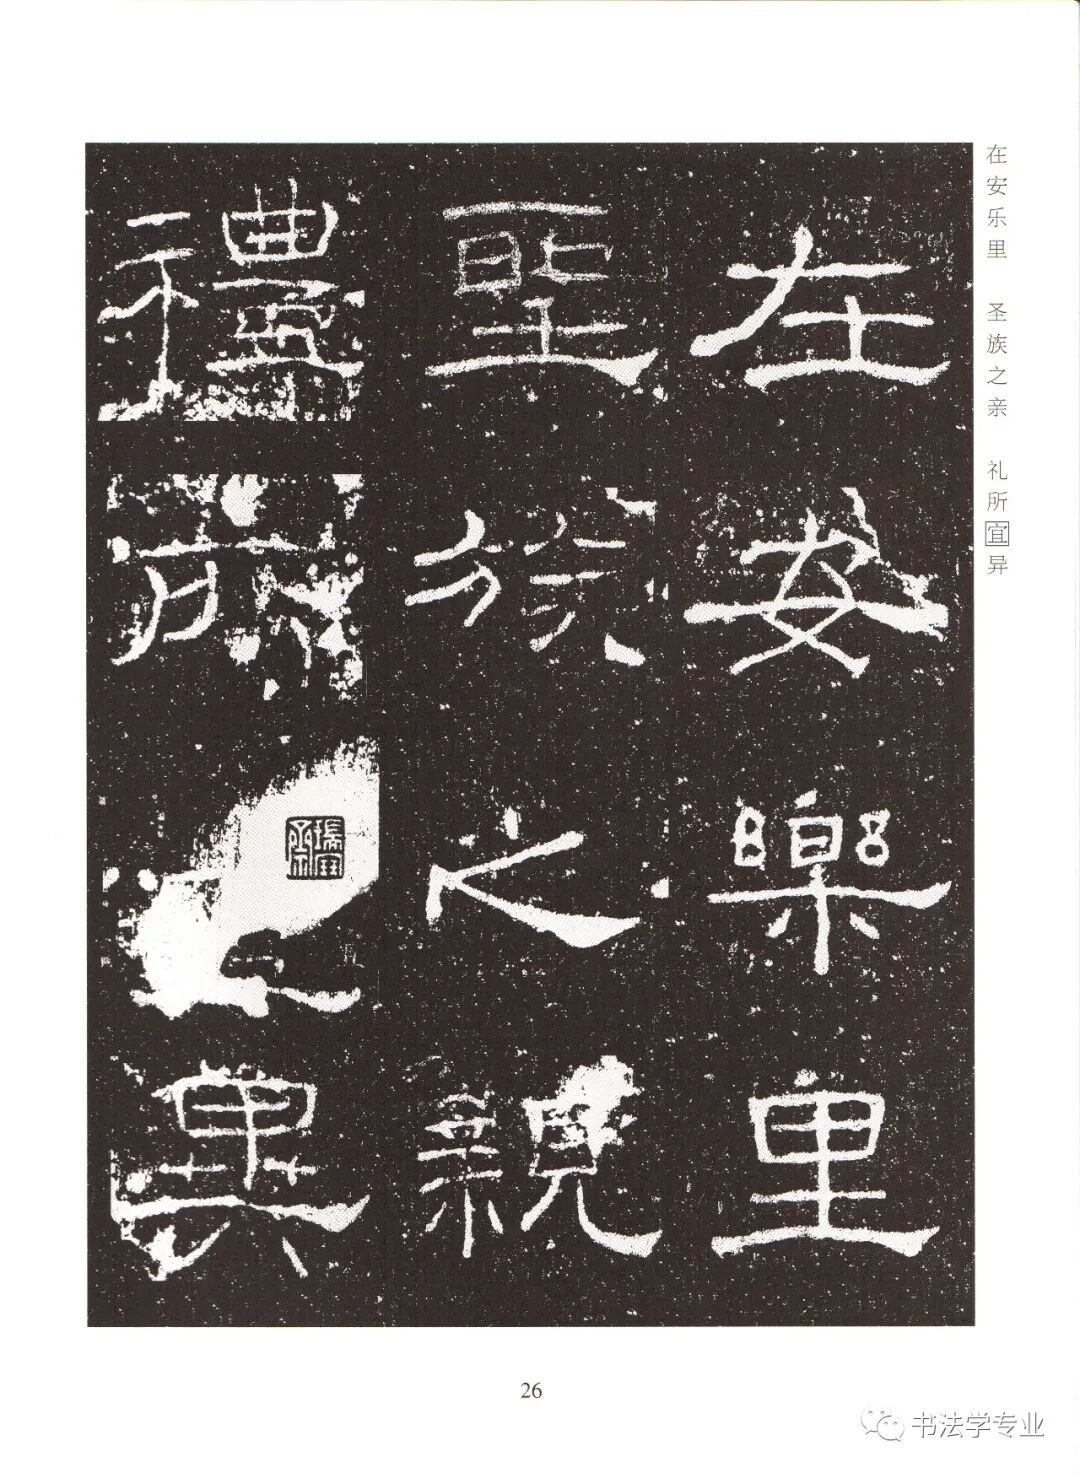 在安樂里
聖族之親
禮所異
在安乐里 圣族之亲 礼所宜异
26
书法学专业